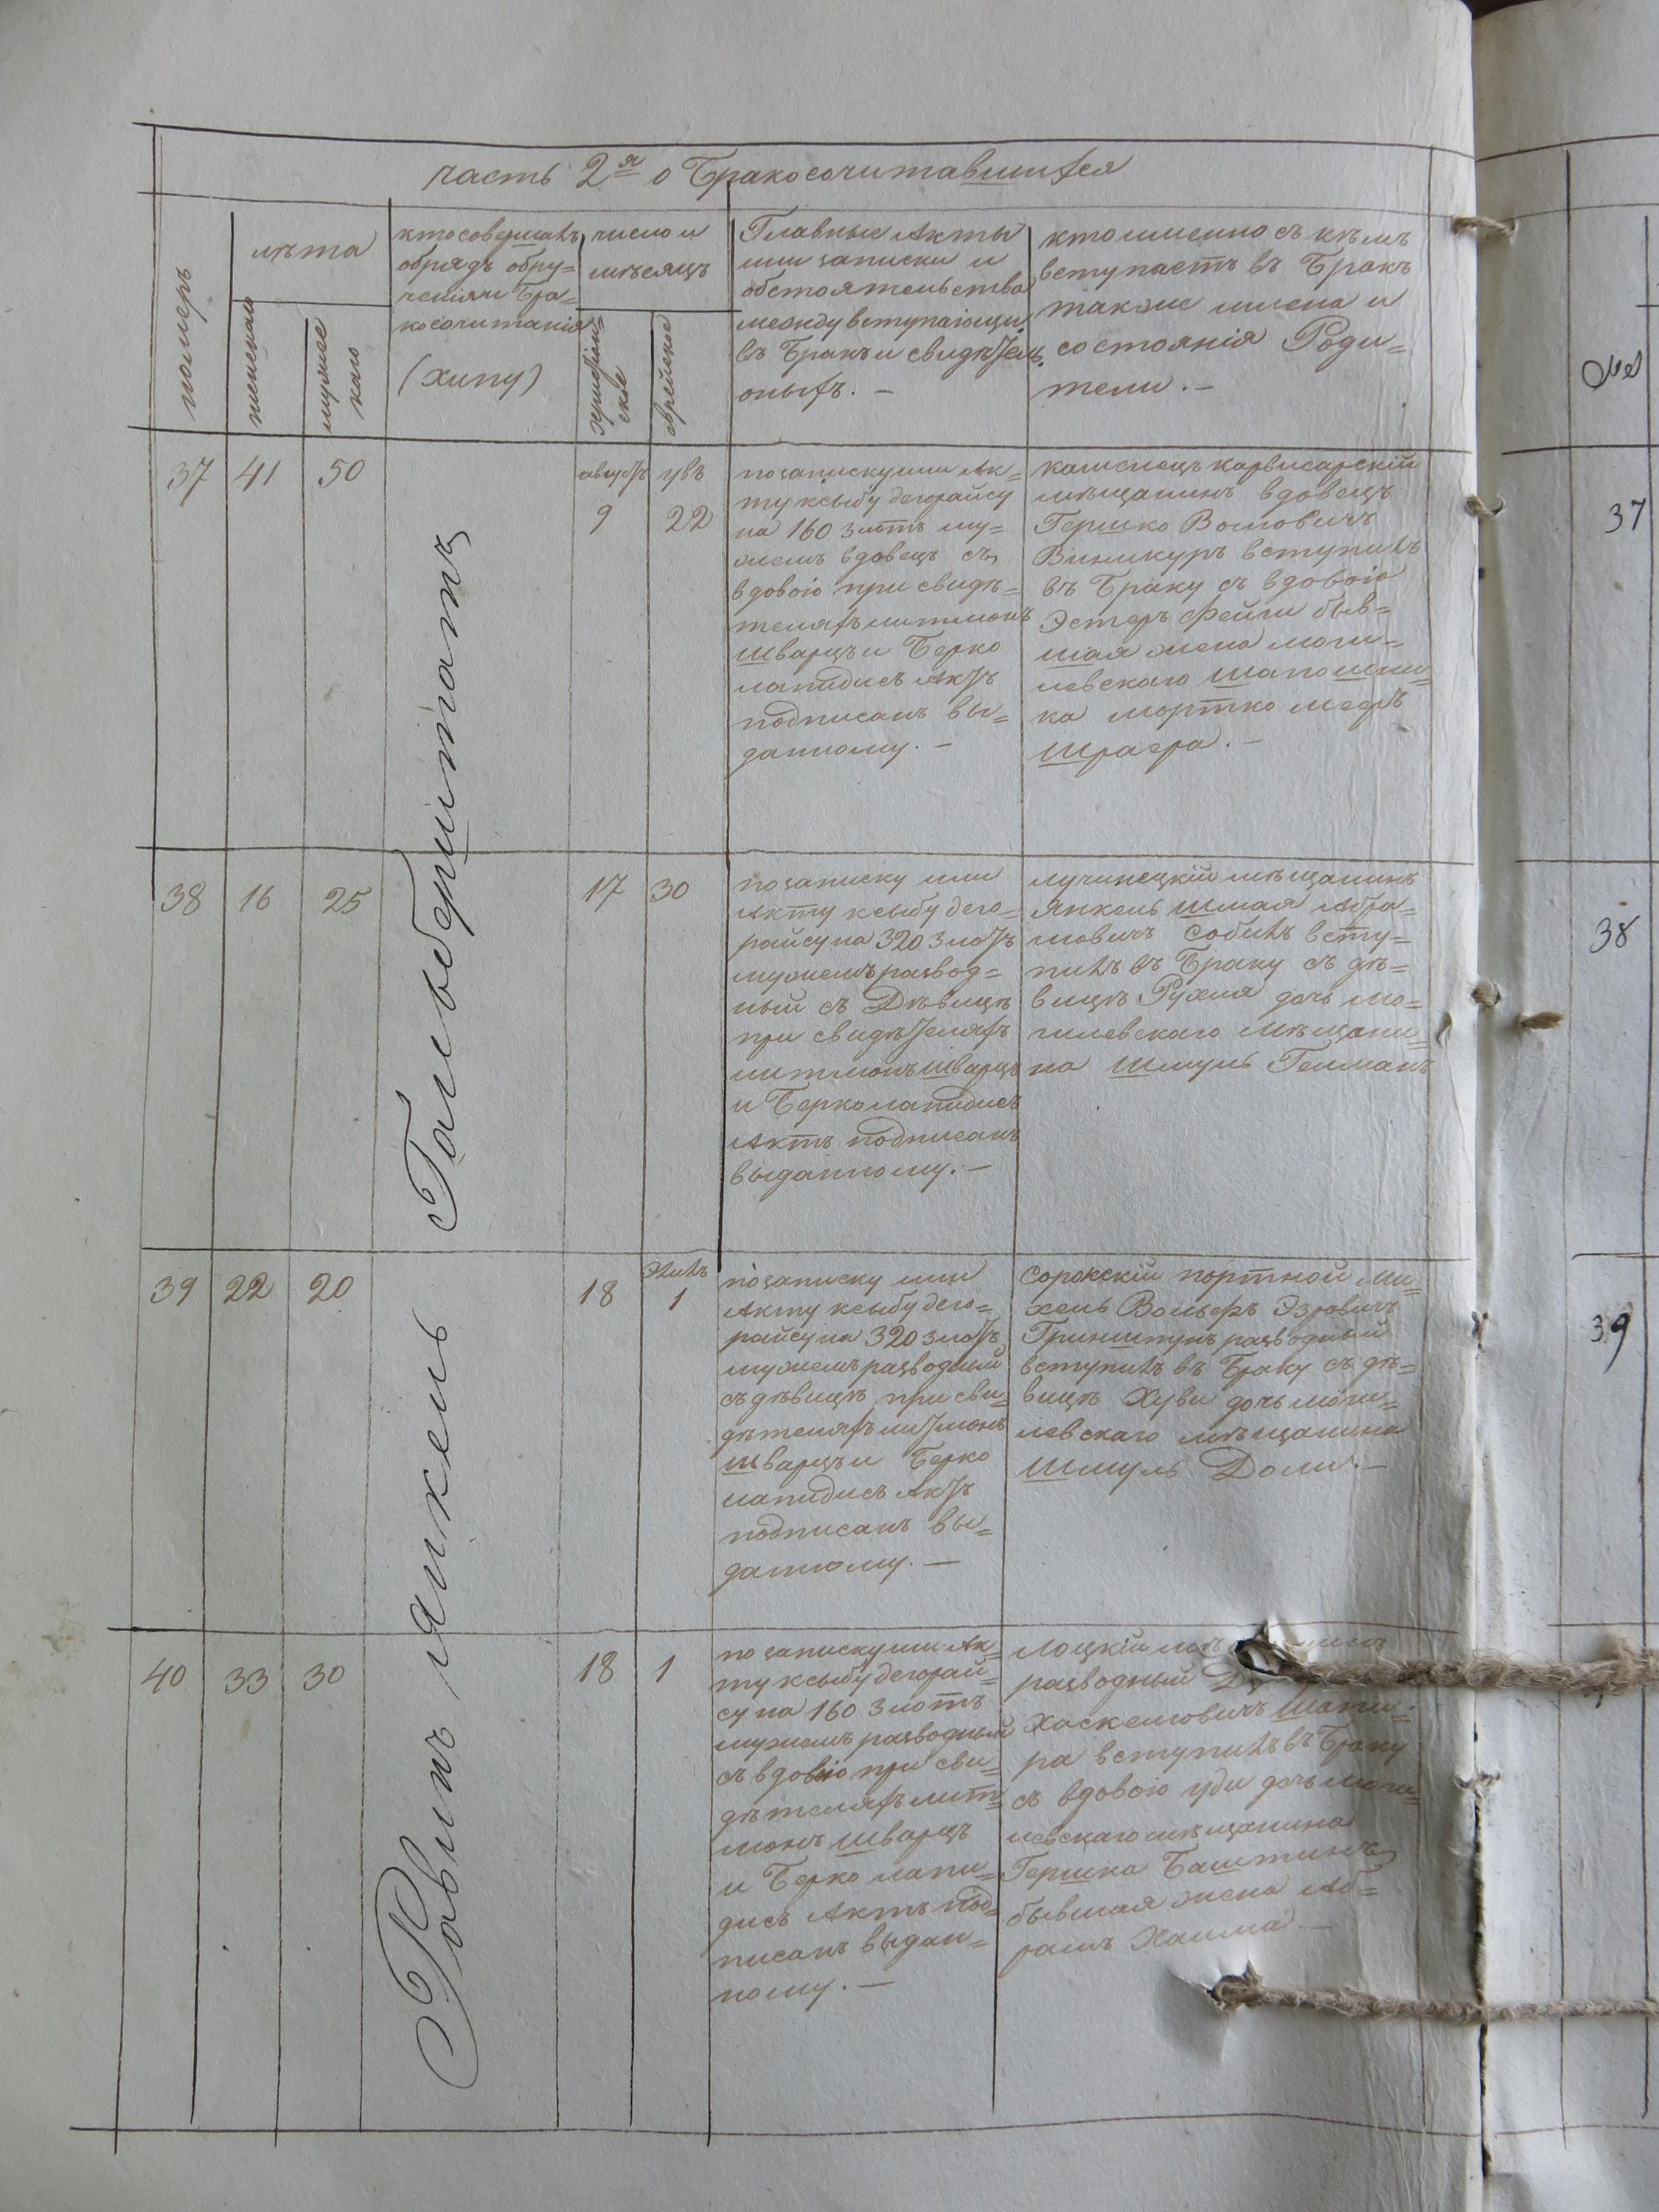 часть 2я о Бракосочитавшихся
номеръ
лѣта
женскаго
мужескаго
кто совершалъ
обрядъ обру=
ченія и Бра=
косочитанія
(хипу)
число и
мѣсяцъ
христіан=
ское
еврейское
Главные Акты
или записки и
обстоятельства
между вступающи.
въ Бракъ и свидѣтель.
оныхъ. —
кто именно съ кѣмъ
вступаетъ въ Бракъ
также имена и
состоянія Роди=
тели. —
Равинъ Янкель Гальберштатъ
37
41
50
августъ
9
увъ
22
по записку или Ак=
ту ксыбу деорайсу
на 160 злотъ му=
жемъ вдовецъ съ
вдовою при свидѣ=
теляхъ литмонъ
Шварцъ и Берко
лапидись Актъ
подписанъ вы=
данному. —
каменецъ
мѣщанинъ вдовецъ
Гершко Волович
Виникуръ вступилъ
въ Браку съ вдовою
Эстеръ Фейги быв=
шая жена моги=
левскаго Шапошни=
ка Мортко Меер
Шраера. —
38
16
25
17
30
по записку или
Акту ксыбу део=
райсу на 320 злотъ
мужемъ развод=
ный съ Дѣвицѣ
при свидѣтеляхъ
литмонъ Шварцъ
и Берко лапидись
Актъ подписанъ
выданному. —
лучинецкій мѣщанинъ
Янкель Шмая Абра=
мовичъ Собиль всту=
пилъ въ Браку съ дѣ=
вицѣ Рухля дочь мо=
гилевскаго мѣщани=
на Шмуль Гелманъ
39
22
20
18
Элилъ
1
по записку или
Акту ксыбу део=
райсу на 320 злотъ
мужемъ разводный
съ дѣвицѣ при сви=
дѣтеляхъ литмонъ
Шварцъ и Берко
лапидись Актъ
подписанъ вы=
данному. —
Сорокскій портной Ми=
хель Вольфъ Эзровичъ
разводный
вступилъ въ Браку съ дѣ=
вицѣ Хуви дочь моги=
левскаго мѣщанина
Шмуль Доли. —
40
33
30
18
1
по записку или Ак=
ту ксыбу деорай=
су на 160 злотъ
мужемъ разводный
съ вдовою при сви=
дѣтеляхъ лит=
монъ Шварцъ
и Берко лапи=
дись Актъ под=
писанъ выдан=
ному. —
разводный
Хаскелевичъ Шапи=
ра вступилъ въ Браку
съ вдовою уди дочь моги=
левскаго мѣщанина
Гершка Баштинъ
бывшая жена Аб=
рамъ Хаима. —
37
38
39